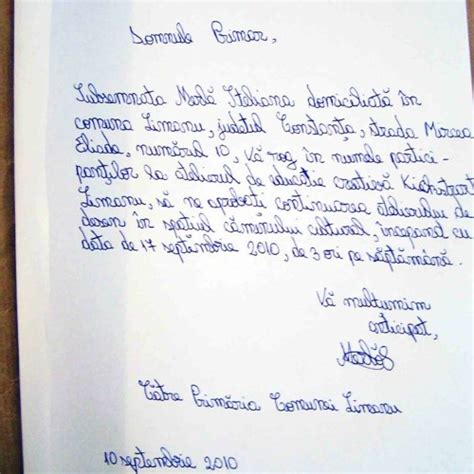 Domnule Primar,
Subsemnata Merlă Italiana domiciliată în
comuna Limanu, județul Constanța, strada Mircea
Eliade, numărul 10, Vă rog în numele partici-
panților la atelierul de educație creatiesă Kidistart
Limanu, să ne aprobați continuarea atelierului de
desen în spațiul căminului cultural, începand cu
data de 17 septembrie 2010, de 3 ori pe săptămână.
Vă multumim
anticipat,
Către Primăria Comunei Limanu
10 septembrie 2010